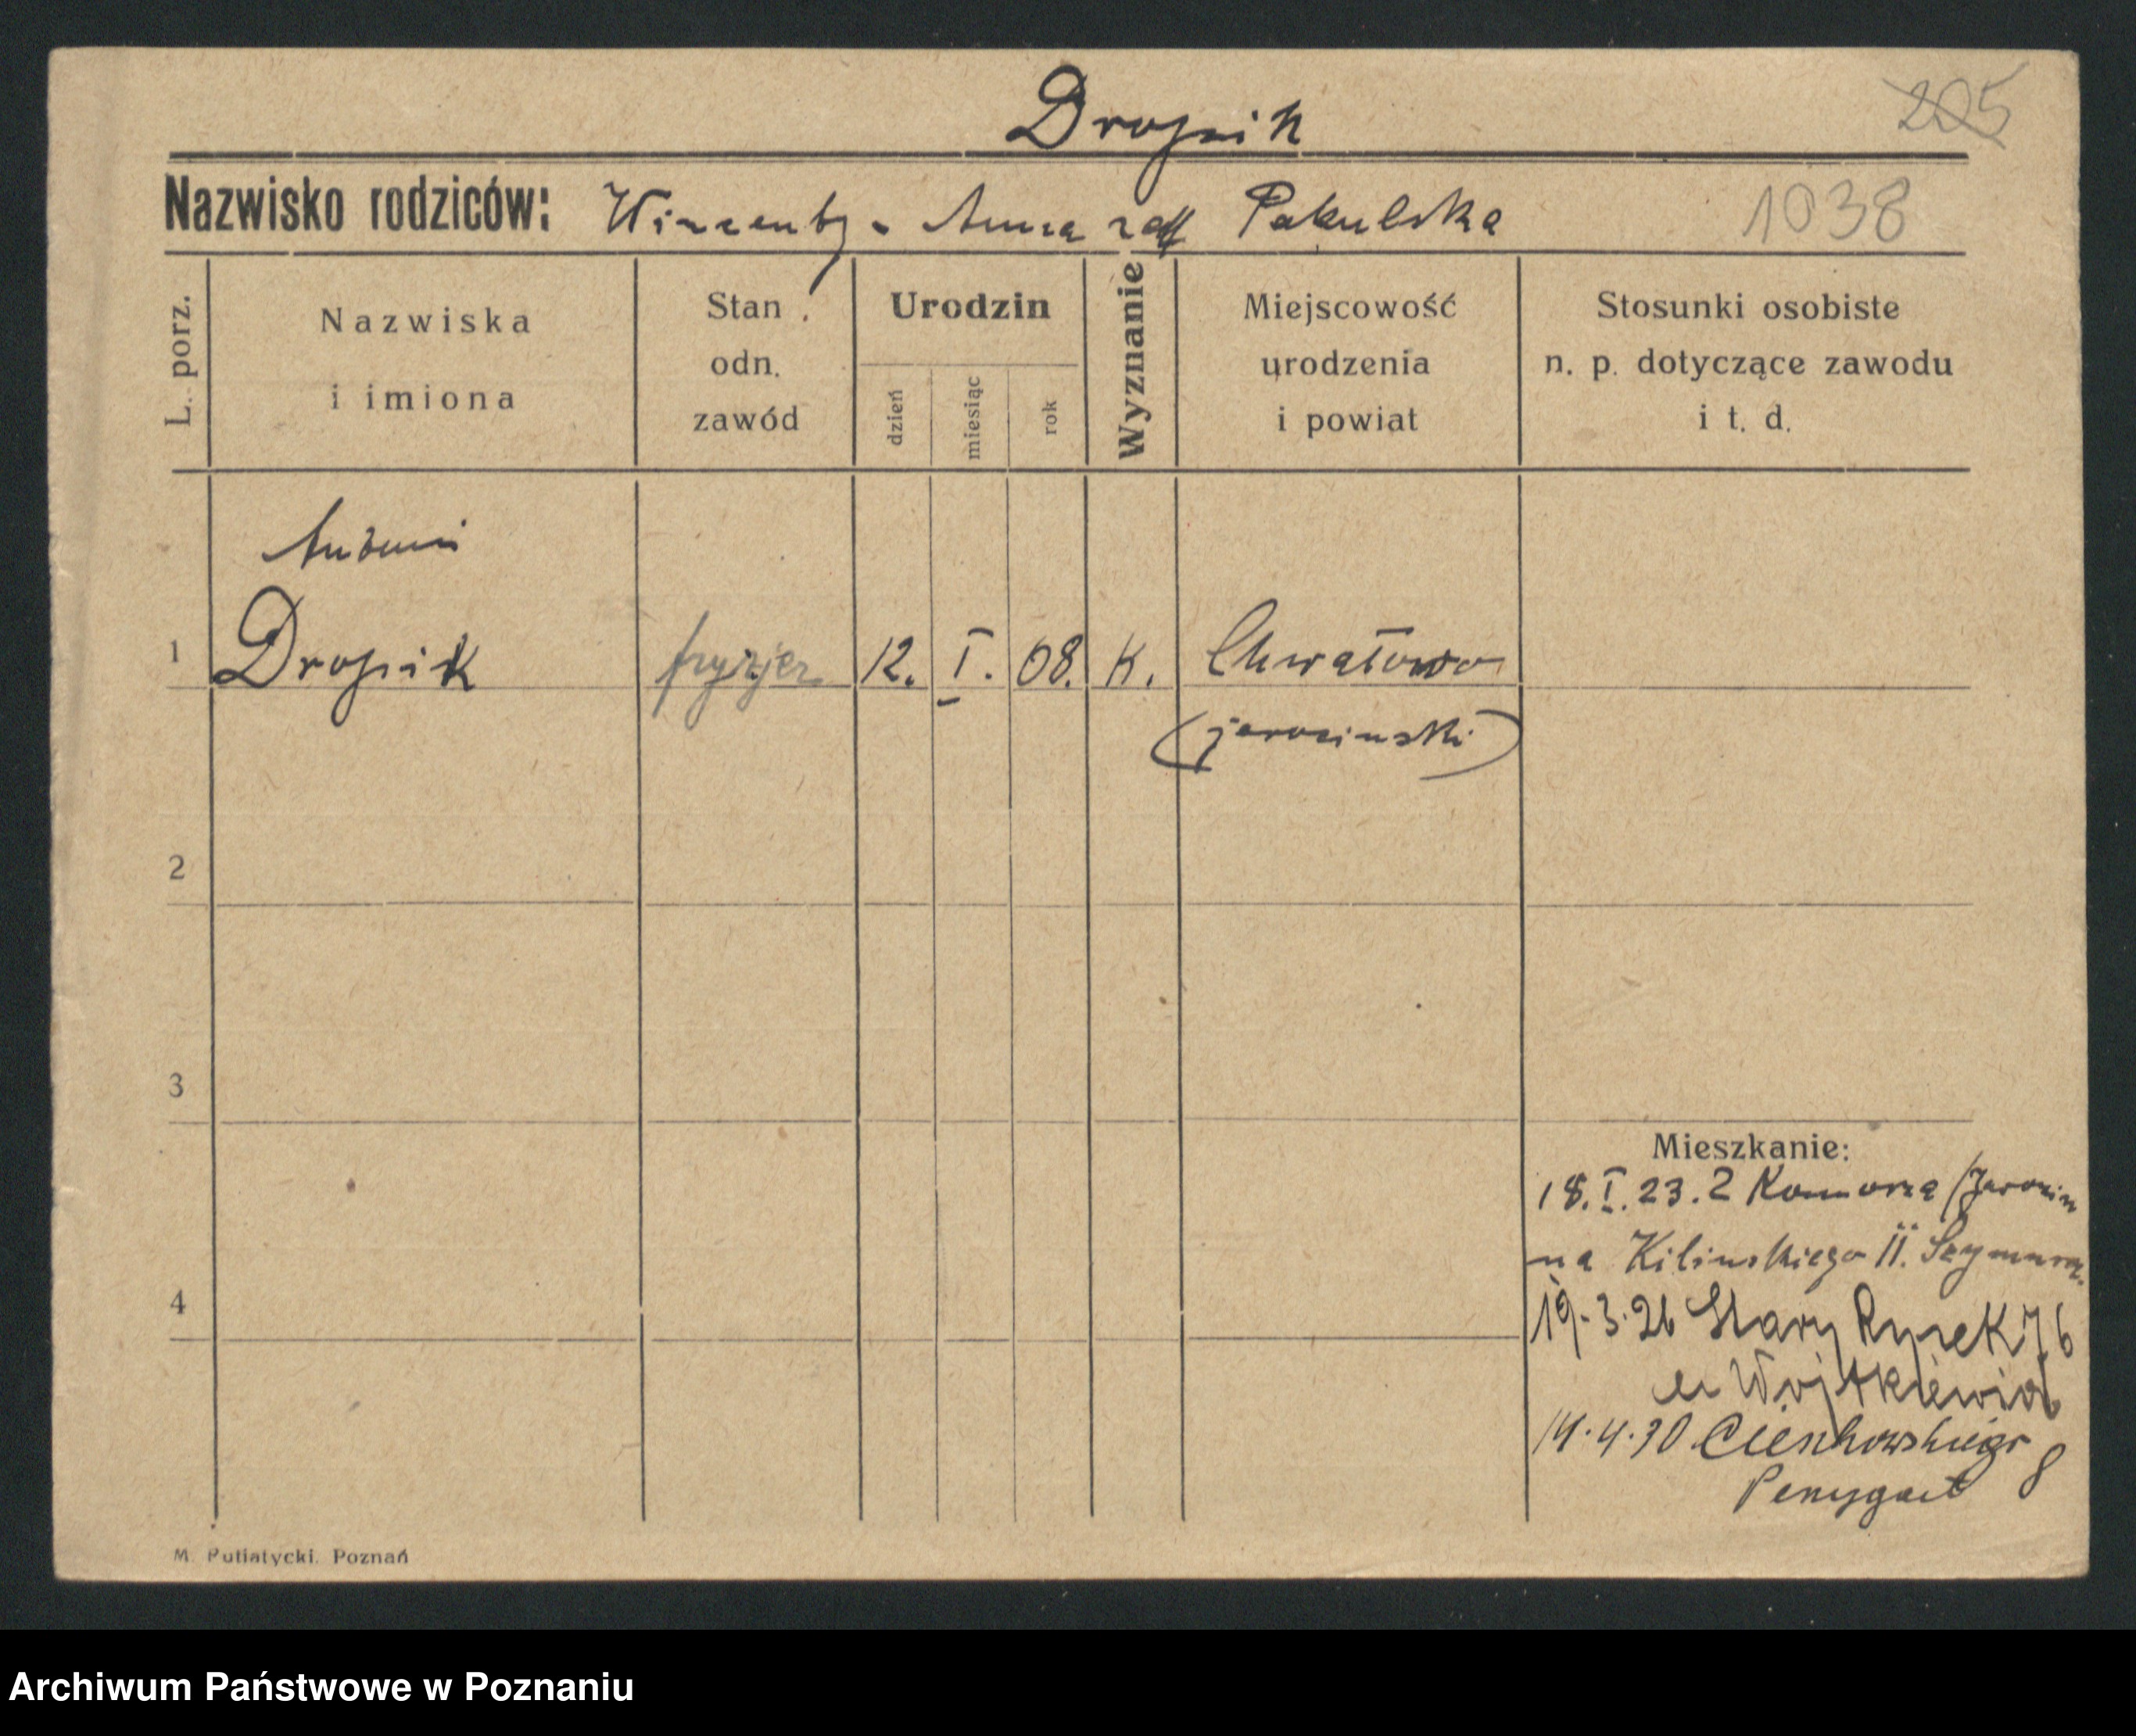 Dropik
205
Nazwisko rodziców: Wincenty - Anna Pakulska
1038
L. porz.
Nazwiska
i imiona
Stan
odn.
zawód
Urodzin
dzień
miesiąc
rok
Wyznanie
Miejscowość
urodzenia
i powiat
Stosunki osobiste
n. p. dotyczące zawodu
i t. d.
Antoni
1 Dropik fryzjer 12. I. 08. K. Chwałowo
(jarocinski)
2
3
4
Mieszkanie:
18. I. 23. z Komorza (Jarocin
na Kilinskiego II.
19.3.26 Stary Rynek 76
u
14.4.30 8
M. Putiatycki. Poznań
Archiwum Państwowe w Poznaniu